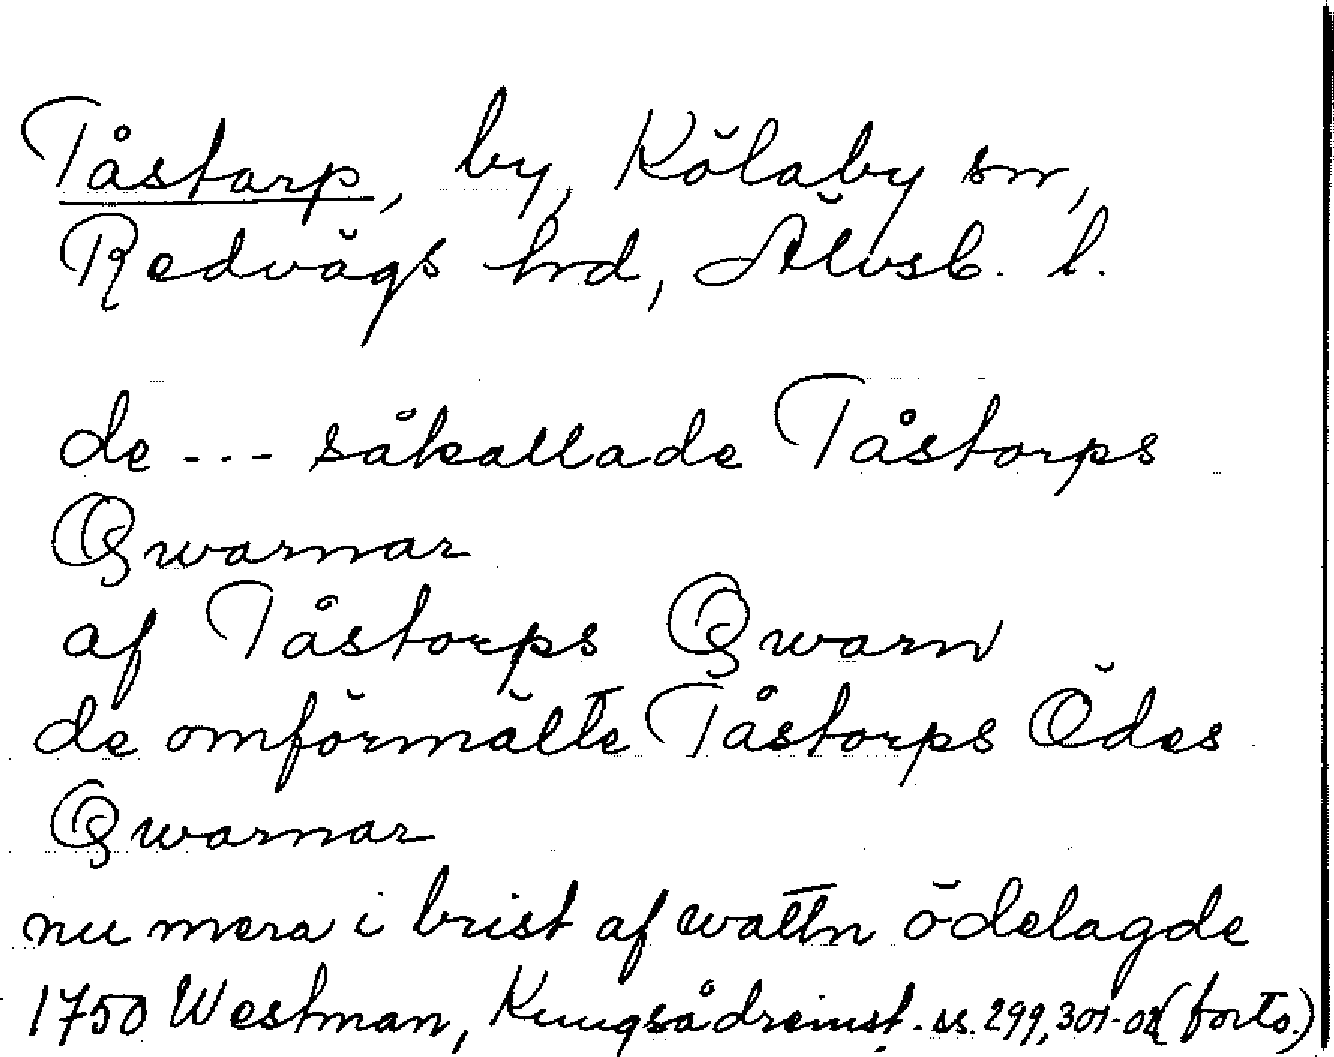 Tåstarp, by, Kölaby sn,
Redvägs hrd, Älvsb. l.
de --- såkallade Tåstorps
Qwarnar
af Tåstorps Qwarn
de omförmälte Tåstorps Ödes
Qwarnar
nu mera i brist af wattn ödelagde
1750 Westman, Kungsådreinst. ss. 299, 301-02 (forts.)